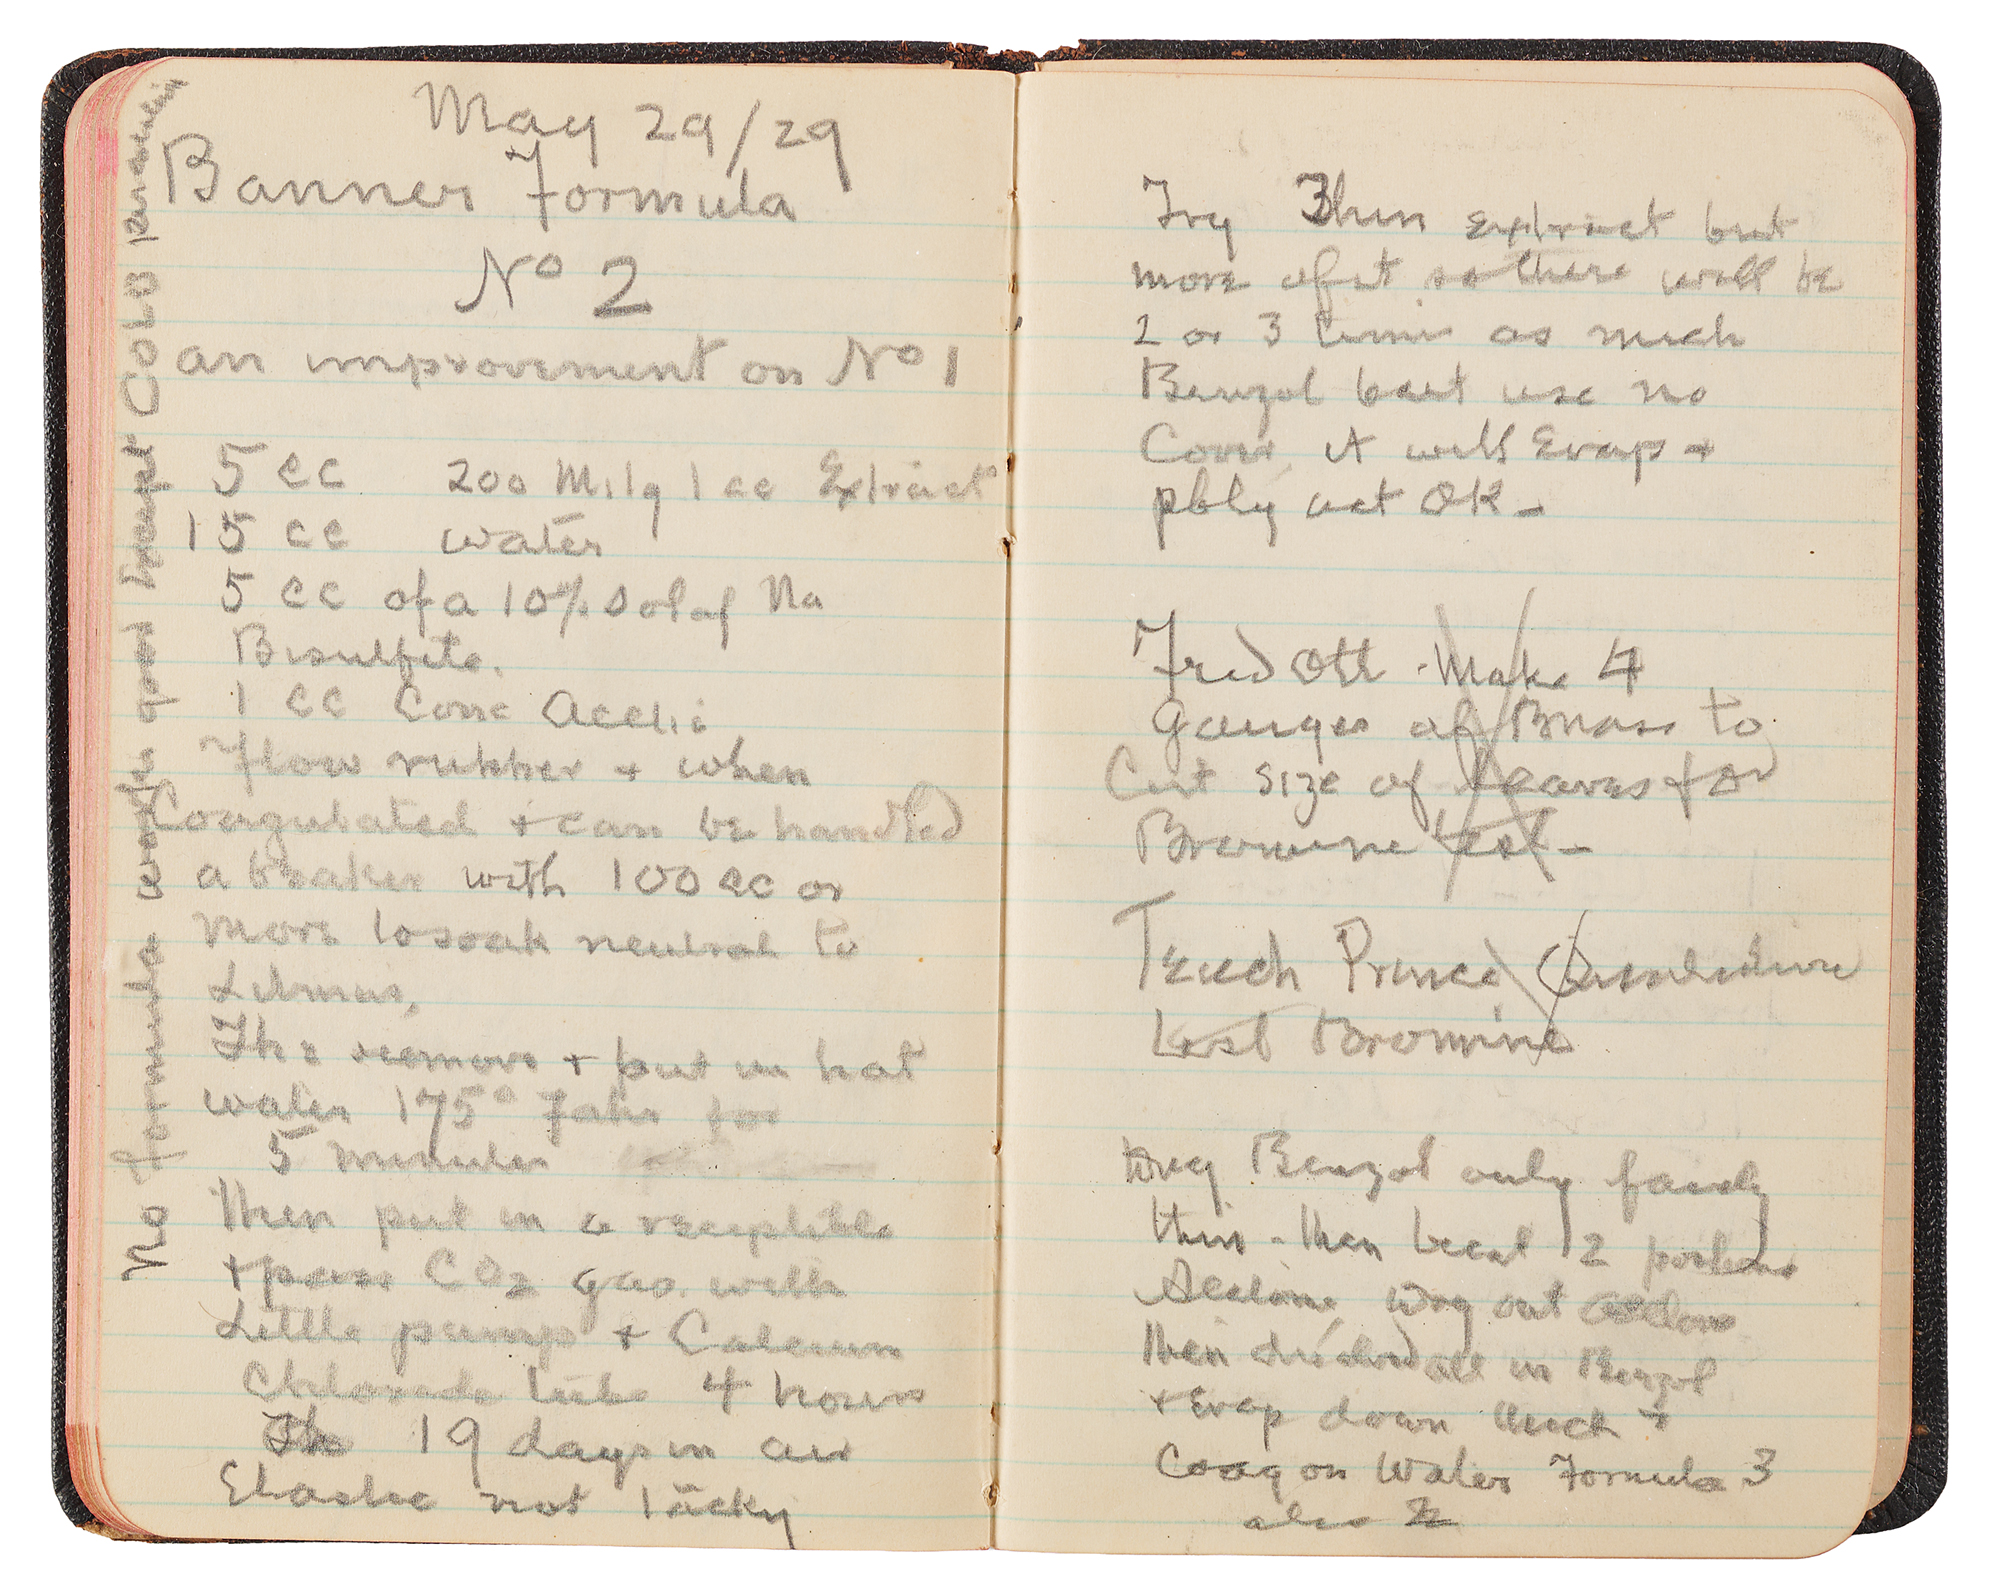 May 29/29
Banner Formula
No 2
an improvement on No 1
5 cc 200 Milg 1 cc Extract
15 cc water
5 cc of a 10% Sol of Na
Bisulfite.
1 cc Conc Acetic
Flow rubber + when
Coagulated + can be handled
a beaker with 100 cc or
more to soak neutral to
Litmus,
The remove + put in hot
water 175° Fahr for
5 minutes
Then put in a receptible
+ pass CO2 gas. with
Little pump + Calcium
Chloride tube 4 hours
19 days in air
Elastic not tacky
No formula works good except COLD
Try Thin extract but
more of it so there will be
2 or 3 times as much
Benzol but use no
Cover, it will Evap +
pbly act OK-
Fred Ott - Make 4
Gauges of Brass to
Cut size of Leaves for
Bromine test-
Teach Prince Quantitative
test Bromine
Benzol only fairly
thin - then treat 2 portions
Acetone, Wrg out acetone
then dissolved all in Benzol
+ Evap down thick +
Coag on Water Formula 3
also 2